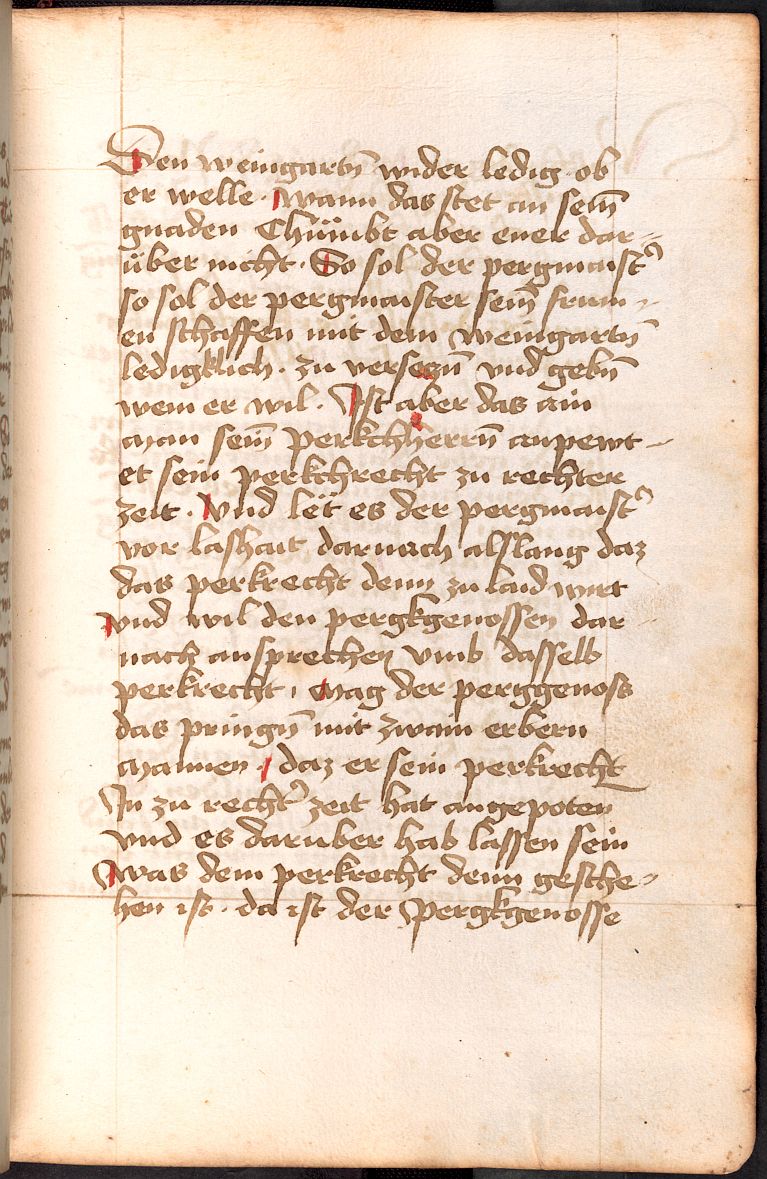 Den weingartn̄ wider ledig · ob
er welle · wann das stet an sein̄
gnaden Chüm̄bt aber ener dar-
über nicht · So sol der pergmaist᷑
so sol der pergmaister sein̄ frum-
en schaffen mit dem weingartn̄
ledigklich · zu versetzn̄ vnd gebn̄
wem er wil · Ist aber das ain
man sein̄ perkchherrn̄ anpewt-
et sein perkchrecht zu rechter
zeit · Vnd lët es der pergmaist᷑
vor lashait darnach alslang daz
das perkrecht denn zu laid wirt
vnd wil den pergkgenossen dar-
nach ansprechen vmb dasselb
perkrecht · Mag der perggenoss
das pringn̄ mit zwain erbern
mannen · daz er sein perkrecht
In zu recht᷑ zeit hat angepoten
vnd es daruber hab lassen sein
was dem perkrecht denn gesche-
hen ist · da ist der pergkgenosse